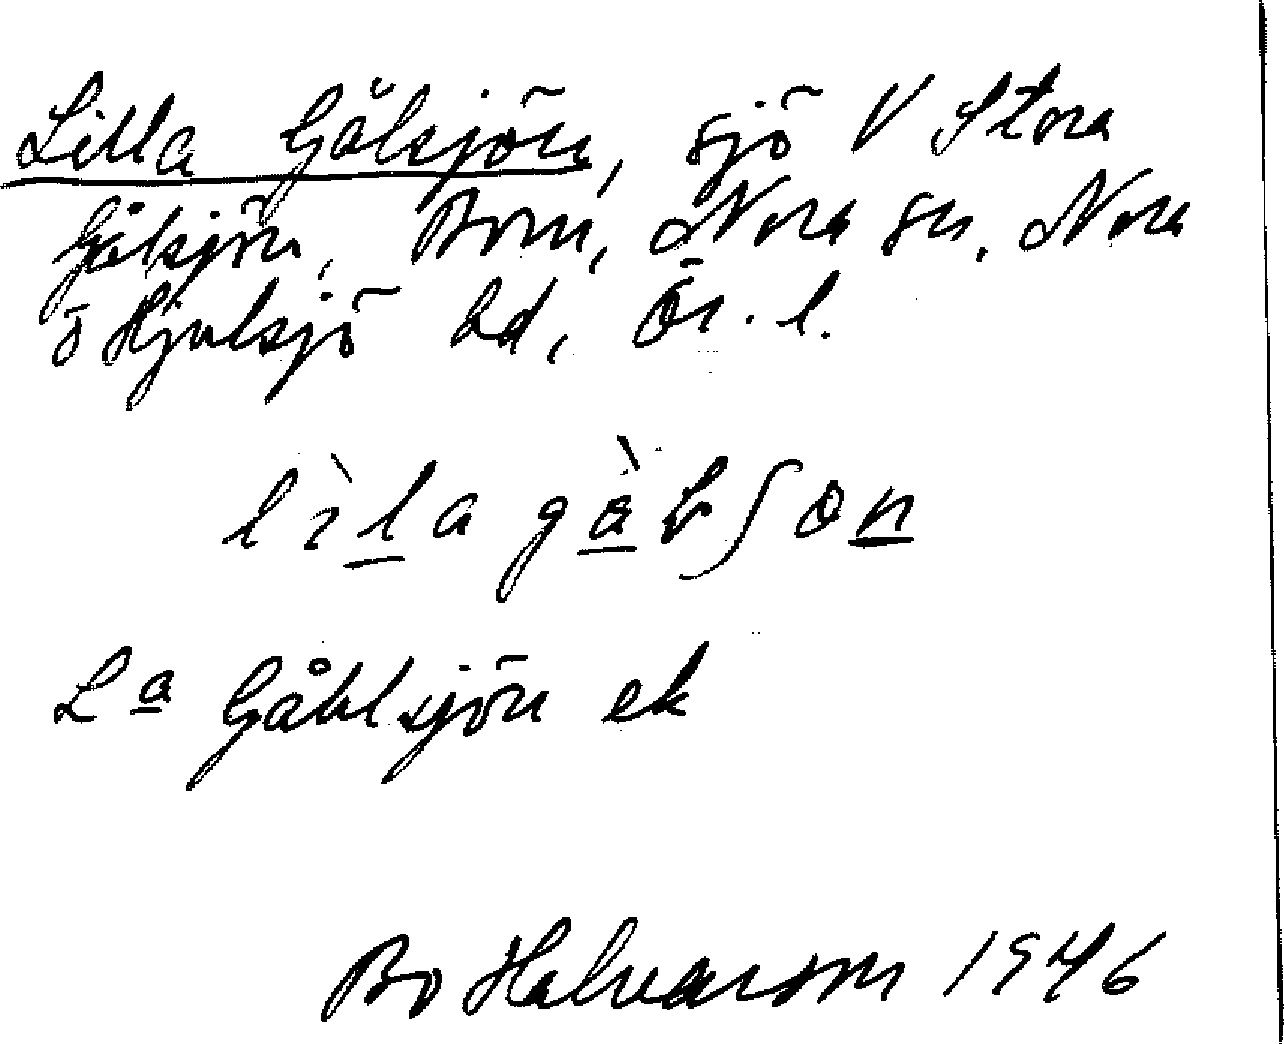 Lilla Gålsjön, sjö V Stora
Gålsjön, Born, Nora sn, Nora
o Hjulsjö bd, Ör. l.
Lª Gåhlsjön ek
Bo Halvarson 1946